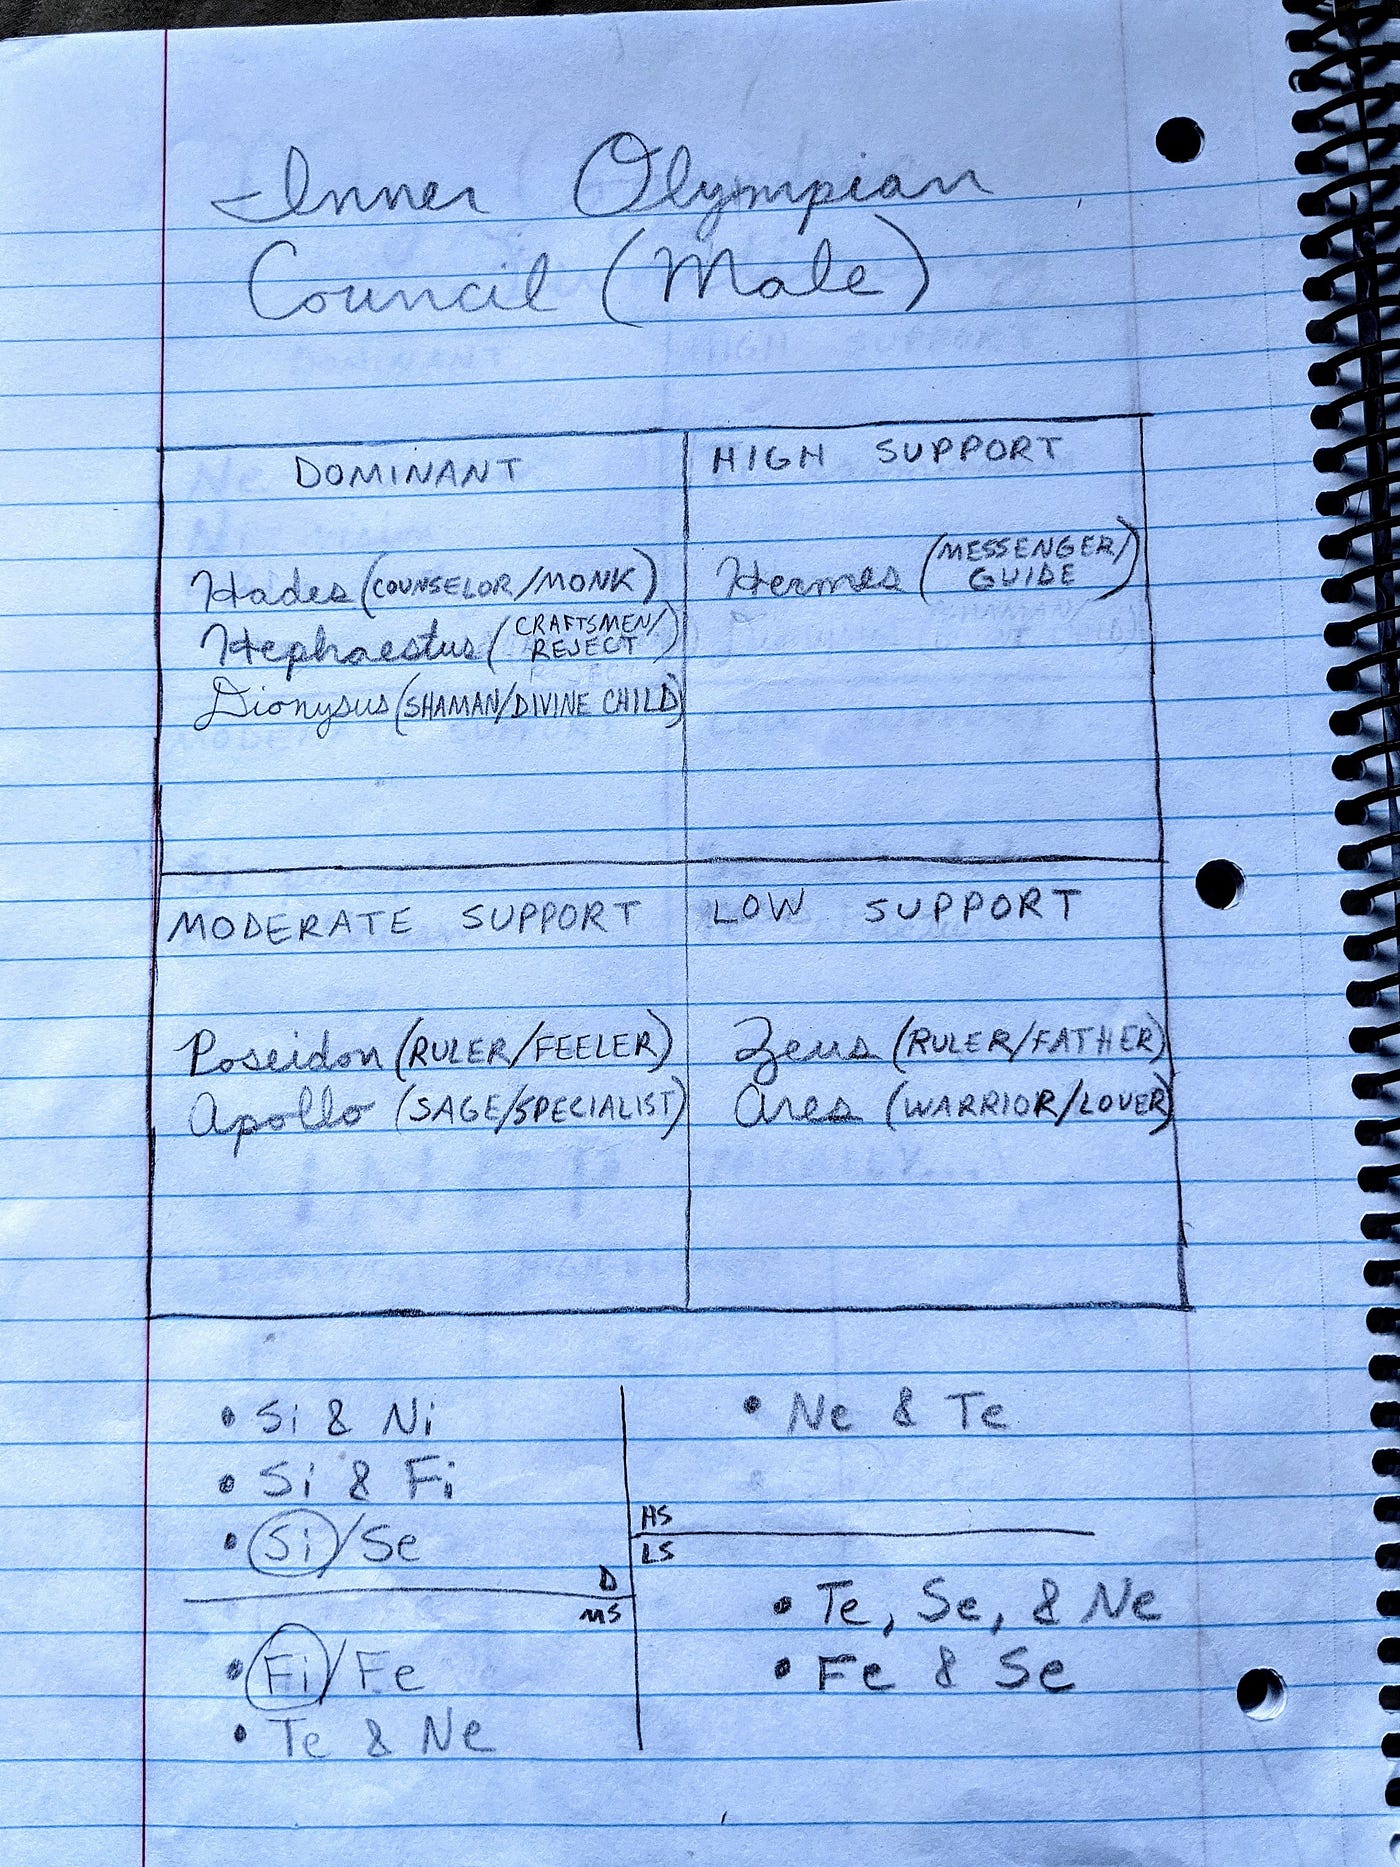 Inner Olympian
Council (Male)
DOMINANT
Hades (COUNSELOR/MONK)
Hephaestus (CRAFTSMEN/
REJECT)
Dionysus (SHAMAN/DIVINE CHILD)
HIGH SUPPORT
Hermes (MESSENGER/
GUIDE)
MODERATE SUPPORT
Poseidon (RULER/FEELER)
Apollo (SAGE/SPECIALIST)
LOW SUPPORT
Zeus (RULER/FATHER)
Ares (WARRIOR/LOVER)
• Si & Ni
• Si & Fi
• Si/Se
D
MS
• Fi/Fe
• Te & Ne
• Ne & Te
HS
LS
• Te, Se, & Ne
• Fe & Se